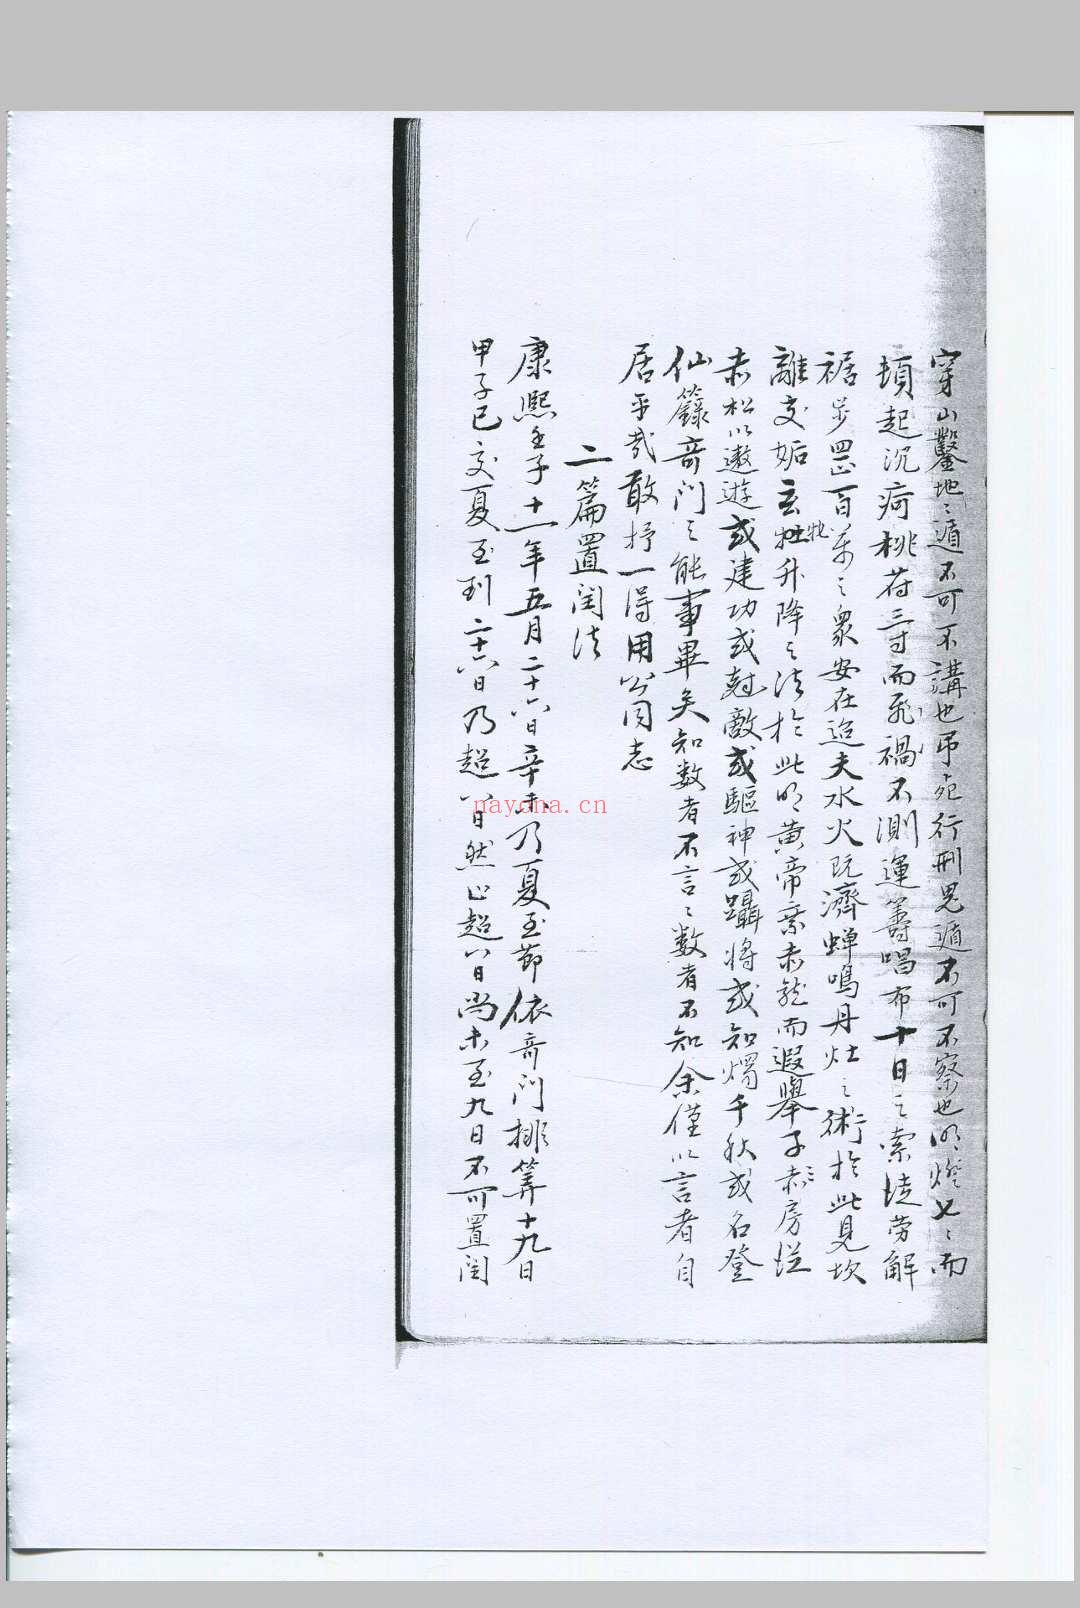 穿山鑿地〻遁不可不講也弔死行刑鬼遁不可不察也明燈七〻而
頓起沉疴桃符三寸而飛禍不測運籌唱布十日之索徒勞解
裾步罡百萬之衆安在迨夫水火既濟蟬鳴丹灶之術於此見坎
離交姤玄牝升降之法於此明黃帝乘赤龍而遐舉子房從
赤松以遨遊或建功或尅敵或驅神或躡將或知燭千秋或名登
仙籙奇门之能事畢矣知数者不言〻数者不知余僅以言者自
居乎哉敢抒一得用公同志
二篇置閏法
康熙壬子十一年五月二十六日辛未乃夏至節依奇门排筭十九日
甲子已交夏至到二十六日乃超八日然止超八日尚未至九日不可置閏
nayona.cn